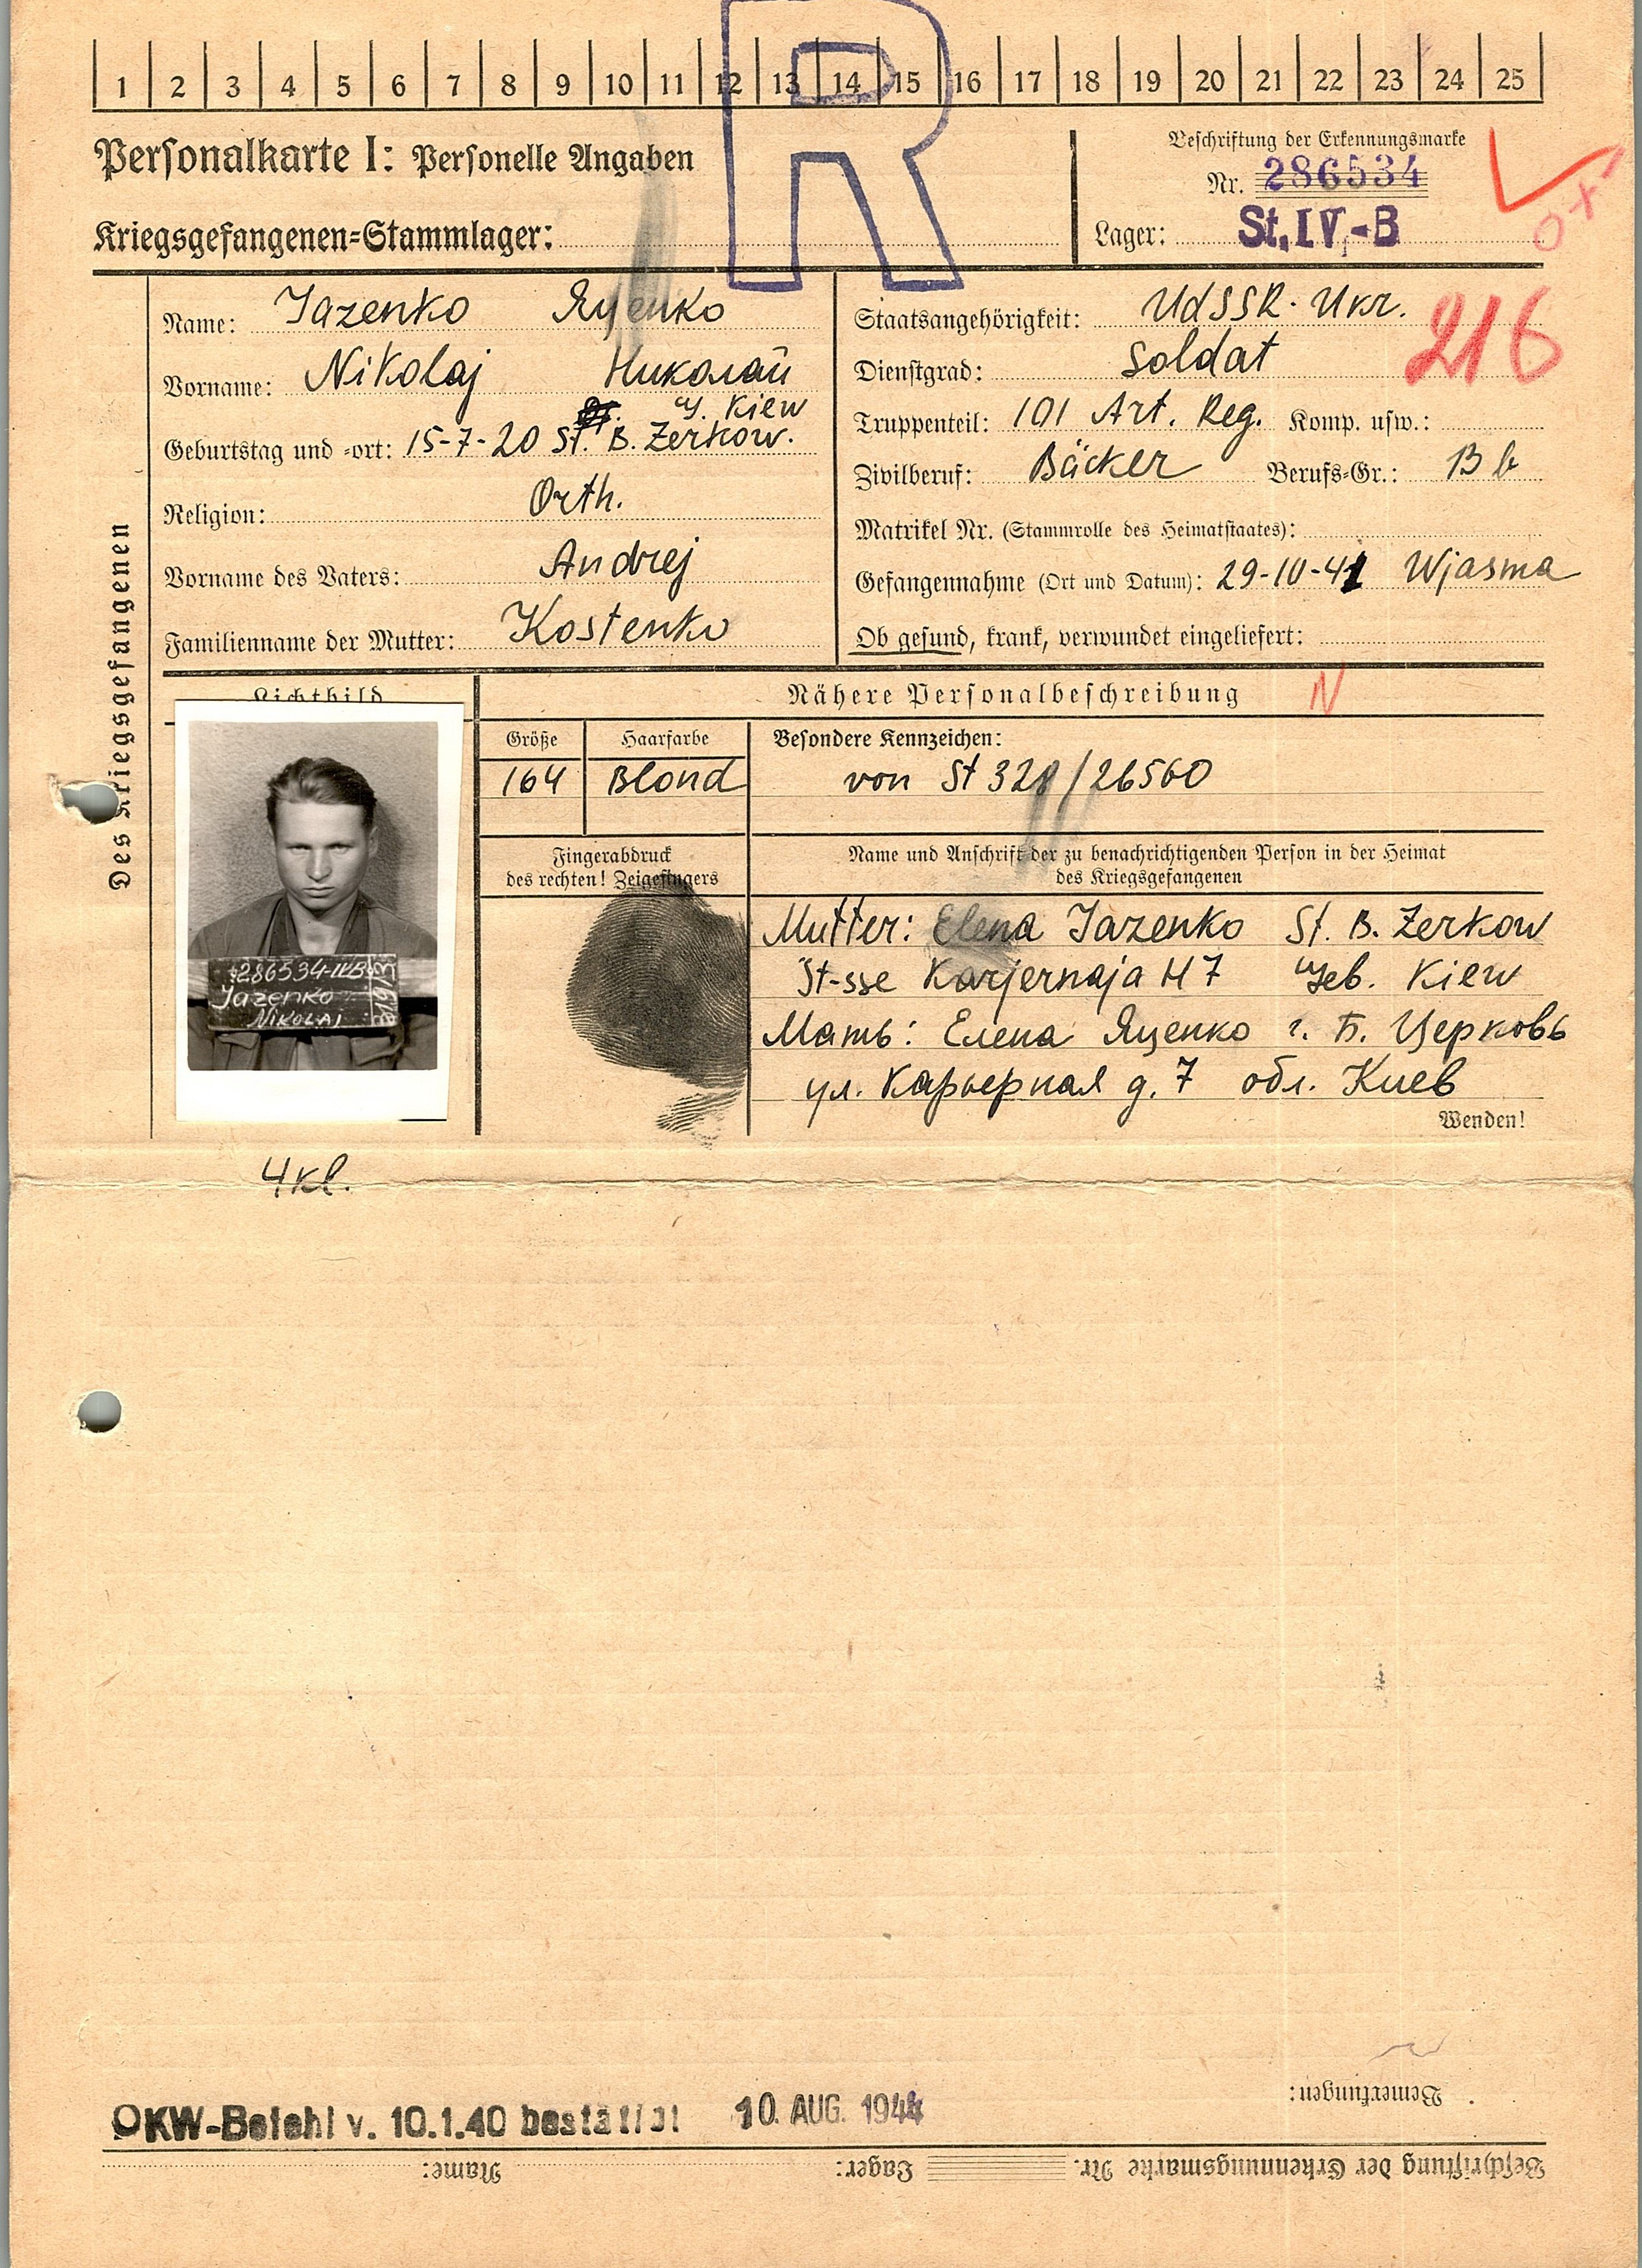 1 2 3 4 5 6 7 8 9 10 11 12 13 14 15 16 17 18 19 20 21 22 23 24 25
R
Personalkarte I: Personelle Angaben
Kriegsgefangenen=Stammlager:
Beschriftung der Erkennungsmarke
Nr. 286534
Lager: St. IV-B
Des Kriegsgefangenen
Name: Jazenko Яценко
Vorname: Nikolaj Николай
Kiew
Geburtstag und =ort: 15-7-20 St. B. Zerkow.
Religion: Orth.
Vorname des Vaters: Andrej
Familienname der Mutter: Kostenko
Staatsangehörigkeit: UdSSR. Ukr.
216
Dienstgrad: Soldat
Truppenteil: 101 Art. Reg. Komp. usw.:
Zivilberuf: Bäcker Berufs=Gr.: B b
Matrikel Nr. (Stammrolle des Heimatstaates):
Gefangennahme (Ort und Datum): 29-10-41 Wjasma
Ob gesund, krank, verwundet eingeliefert:
Lichtbild
Nähere Personalbeschreibung N
Größe Haarfarbe Besondere Kennzeichen:
164 Blond von St 328/26560
286534-IVB
Jazenko
Nikolaj
Fingerabdruck
des rechten! Zeigefingers
Name und Anschrift der zu benachrichtigenden Person in der Heimat
des Kriegsgefangenen
Mutter: Elena Jazenko St. B. Zerkow
St-sse Karjernaja H 7 Geb. Kiew
Мать: Елена Яценко г. Б. Церковь
ул. Карьерная д. 7 обл. Киев
Wenden!
4 kl.
Bemerkungen:
OKW-Befehl v. 10.1.40 bestätigt 10. AUG. 1944
Beschriftung der Erkennungsmarke Nr. Lager: Name: